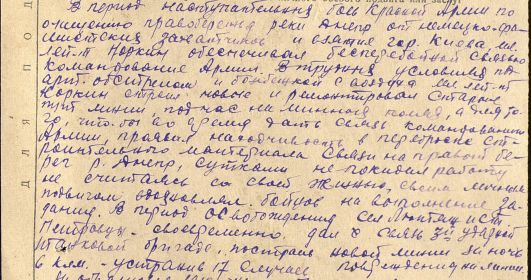 В период наступательных боев Красной Армии по
очищению правобережья реки Днепр от немецко-фа-
шистских захватчиков и взятия гор. Киева, мл.
лей-т Коркин обеспечивал бесперебойной связью
командование Армии. В трудных условиях под
арт. обстрелом и бомбежкой с воздуха мл. лей-т
Коркин строил новые и ремонтировал старые
линии, подчас на минных полях, а для то-
го, чтобы во время дать связь командованию
Армии, проявил находчивость в переброске ст-
роительного материала связи на правый бе-
рег р. Днепр, сутками не покидал работу
не считаясь со своей жизнью, своим личным
подвигом воодушевлял бойцов на выполнение за-
дания. В период освобождения сел Лютеж и Ст.
Петровцы - своевременно дал связь 3й ударной
танковой бригаде, построив новой линии за ночь
6 клм. - устранив 17 случаев повреждения линии